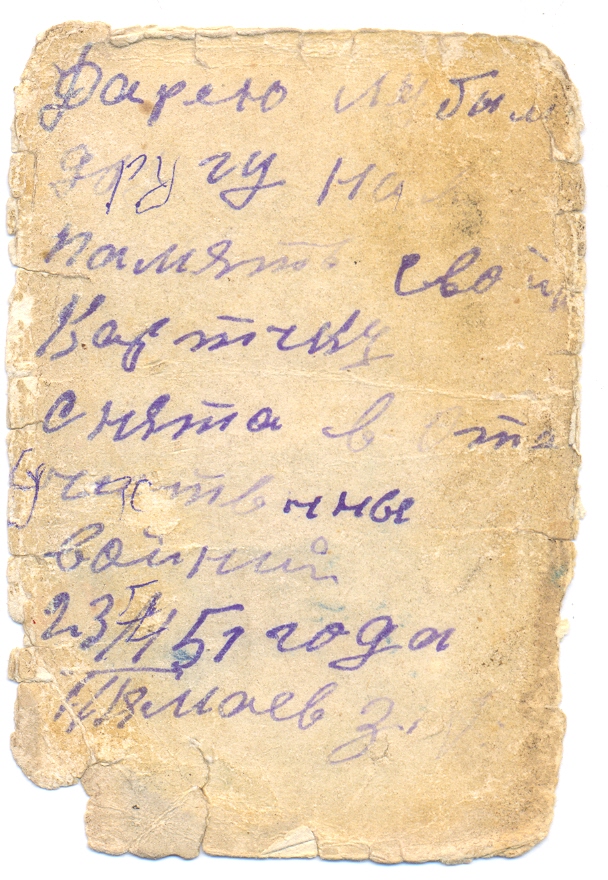 Дарею лубим
другу на
память свой
карточку
снята в Оте
участвинные
войний
23/VI 51 года
Шямаев З.